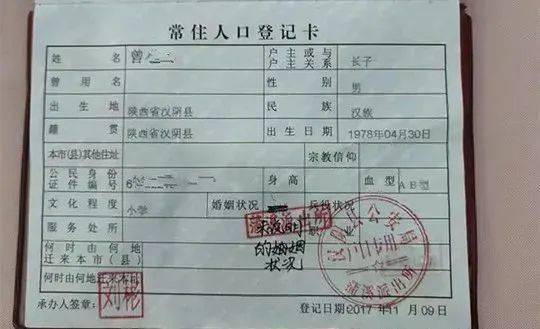 常住人口登记卡
姓 名 曾 户主或与户主关系 长子
曾用名 性别 男
出生地 陕西省汉阴县 民族 汉族
籍贯 陕西省汉阴县 出生日期 1978年04月30日
本市(县)其他住址 宗教信仰
公民身份证件编号 6 身高 血型 AB型
文化程度 小学 婚姻状况 兵役状况
服务处所 职业
何时由何地迁来本市(县)
何时由何地迁来本址
的婚姻
状况
承办人签章: 刘彬 登记日期:2017年11月09日